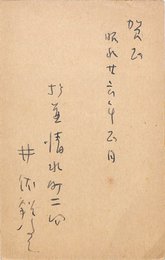 賀正
昭和廿六年正月
杉並清水町二四
井伏鱒二